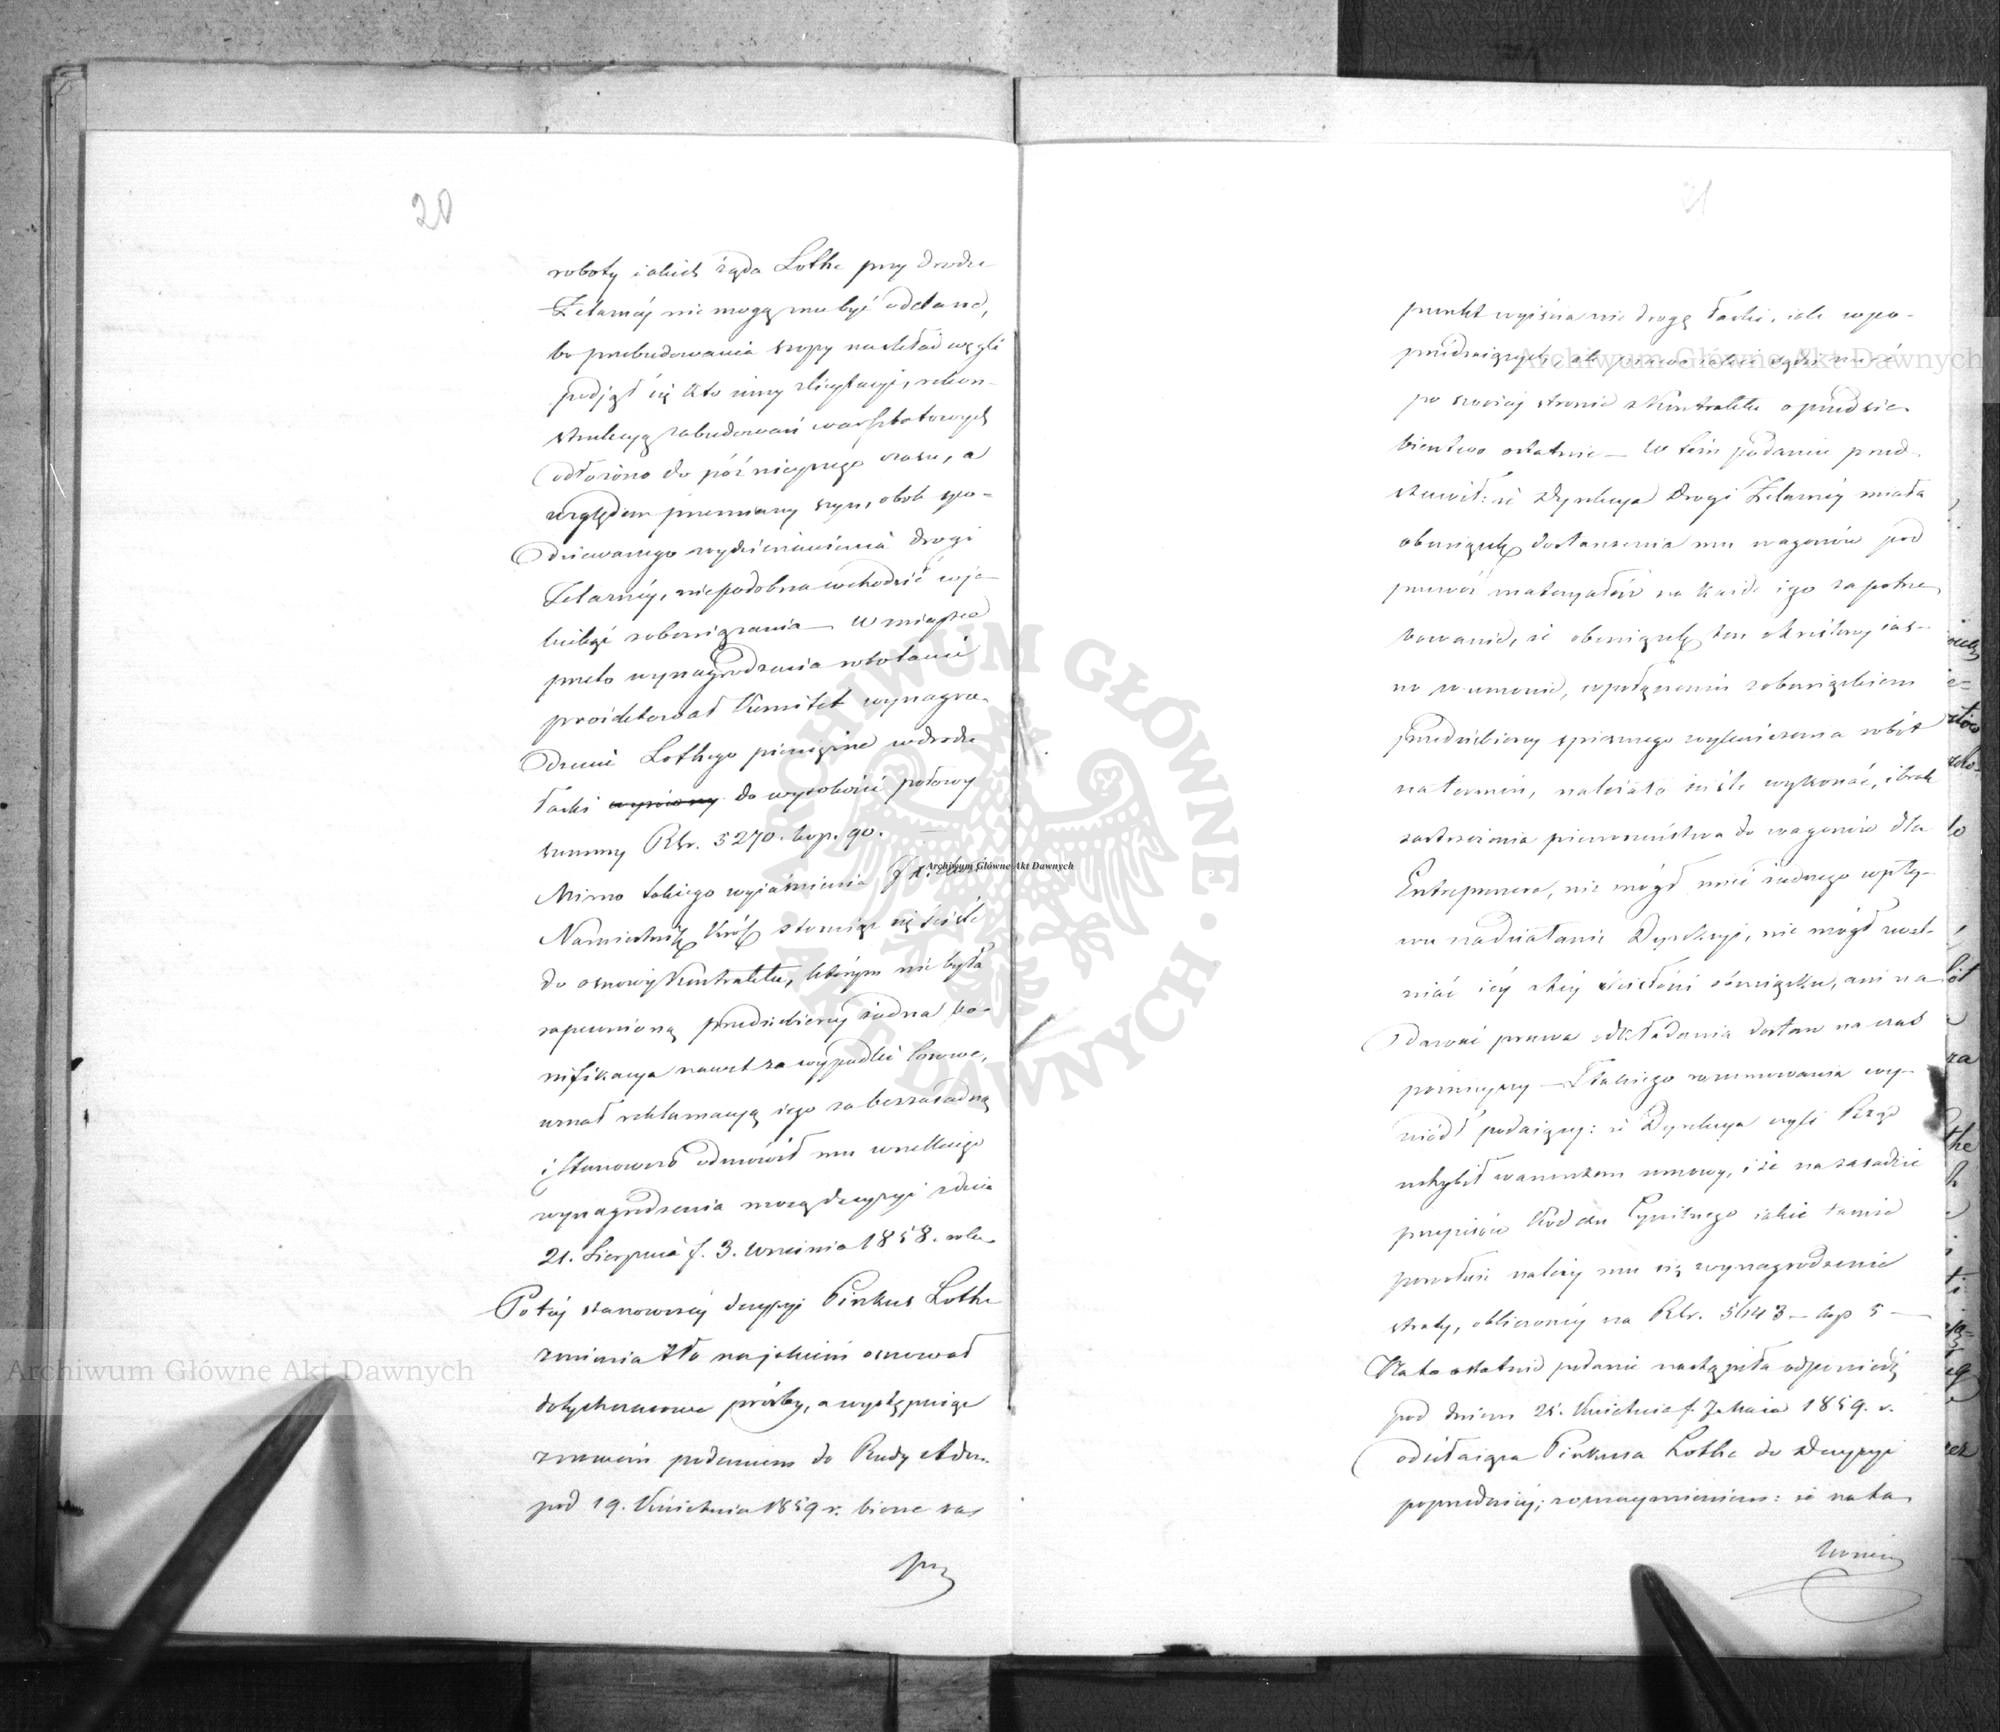 20
roboty iakich żąda Lothe przy drodze
Żelaznéj nie mogą mu być oddane,
bo przebudowania szopy na skład węgli
podjął się kto inny z licytacyi, rekon-
strukcyą zabudowań warsztatowych
odłożono do późnieyszego czasu, a
względem przemiany szyn, obok spo-
dziewanego wydzierżawienia drogi
Żelaznéj, niepodobna wchodzić w ja-
kiebądź zobowiązania — W miejsce
przeto wynagrodzenia robotami
proiektował Komitet wynagro-
dzenie Lothego pieniężne w drodze
łaski do wysokości połowy
summy Rsr. 5270. kop. 90. —
Mimo takiego wyiaśnienia
Namiestnik Król. stosuiąc się ściśle
do osnowy Kontraktu, którym nie była
zapewnioną przedsiębiercy żadna bo-
nifikacya nawet za wypadki losowe,
uznał reklamacyą iego za bezzasadną
i stanowczo odmówił mu wszelkiego
wynagrodzenia mocą decyzyi z dnia
21. Sierpnia /. 3. Września 1858. roku
Po téj stanowczéj decyzyi Pinkus Lothe
zmienia tło na jakiém osnował
dotychczasowe prośby, a występuiąc
z nowém podaniem do Rady Adm.
pod 19. Kwietnia 1859 r. bierze za
21
punkt wyiścia nie drogę łaski, iak w po-
przednich, ale prawo iakie sądzi mieć
po swoiéj stronie z Kontraktu o przedsię-
bierstwo ostatnie — W tém podaniu przed-
stawił: iż Dyrekcya Drogi Żelaznéj miała
obowiązek dostarczenia mu wagonów pod
przewóz materyałów na każde iego zapotrze
bowanie, iż obowiązek ten określony ias-
no w umowie, w połączeniu z obowiązkiem
przedsiębiercy spiesznego wykończenia robót
na termin, należało ściśle wykonać, i brak
zastrzeżenia pierwszeństwa do wagonów dla
Entreprenera, nie mógł mieć żadnego wpły-
wu na działanie Dyrekcyi, nie mógł uwal-
niać iéj z téj ścisłości obowiązku, ani na-
dawać prawa odkładania dostaw na czas
późnieyszy — Z takiego rozumowania wy-
wiódł podaiący: iż Dyrekcya czyli Rząd
uchybił warunkom umowy, i że na zasadzie
przepisów Kodexu Cywilnego iakie tamże
powołuie należy mu się wynagrodzenie
straty, obliczonéj na Rsr. 5643 — kop 5 —
Na to ostatnie podanie nastąpiła odpowiedź
pod dniem 25. Kwietnia /. 7. Maia 1859. r.
odsełaiąca Pinkusa Lothe do decyzyi
poprzedniéj; z oznaymieniem: iż na ta-